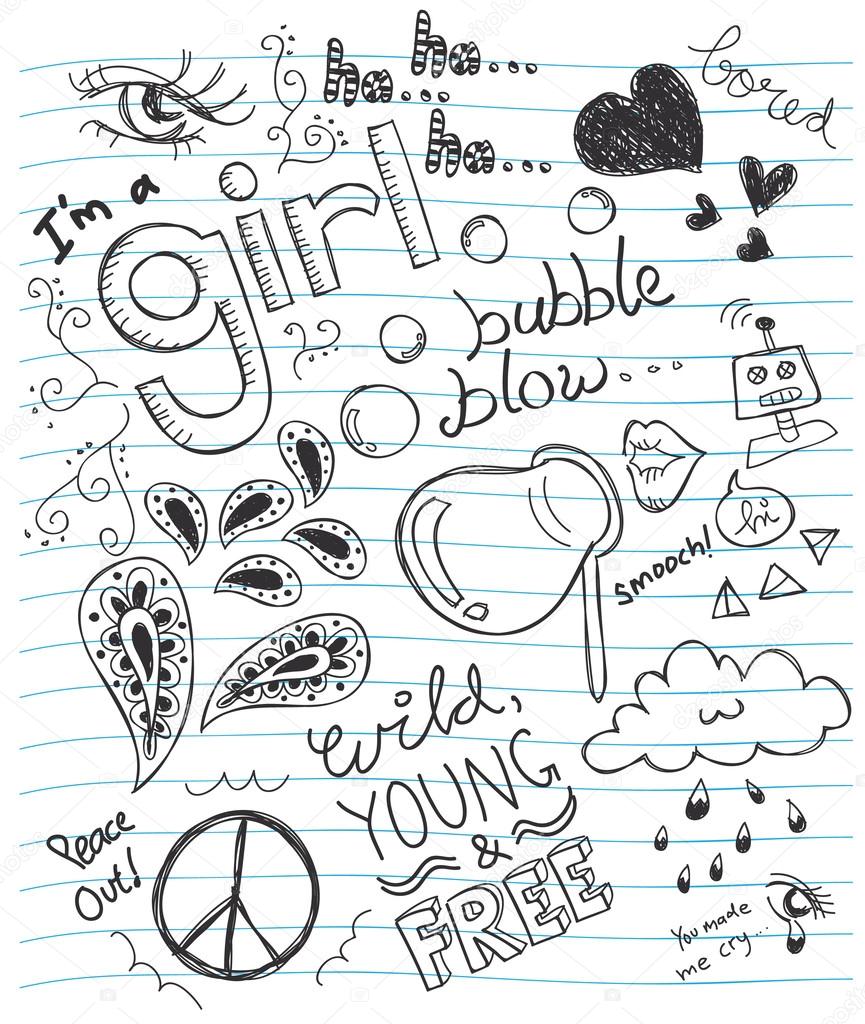 ha...
ha...
ha...
bored
I'm a
girl
bubble
blow....
hi
smooch!
wild,
YOUNG
&
FREE
Peace
Out!
You made
me cry...
depositphotos